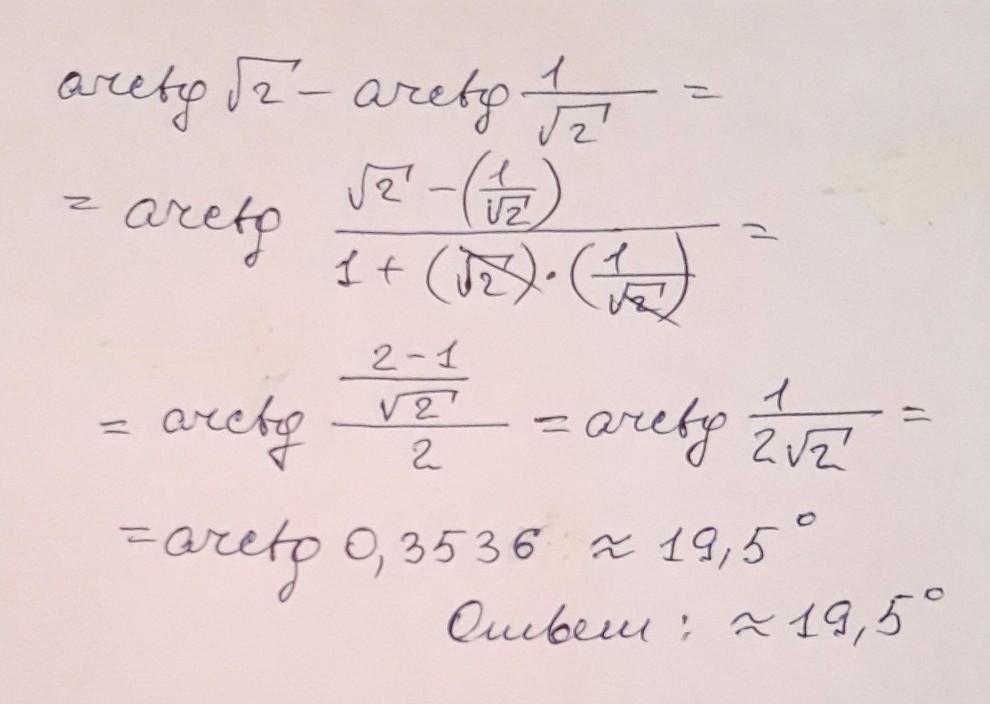 arctg √2 − arctg 1/√2 =
= arctg (√2 − (1/√2)) / (1 + (√2) · (1/√2)) =
= arctg ((2−1)/√2) / 2 = arctg 1/(2√2) =
= arctg 0,3536 ≈ 19,5°
Ответ : ≈ 19,5°